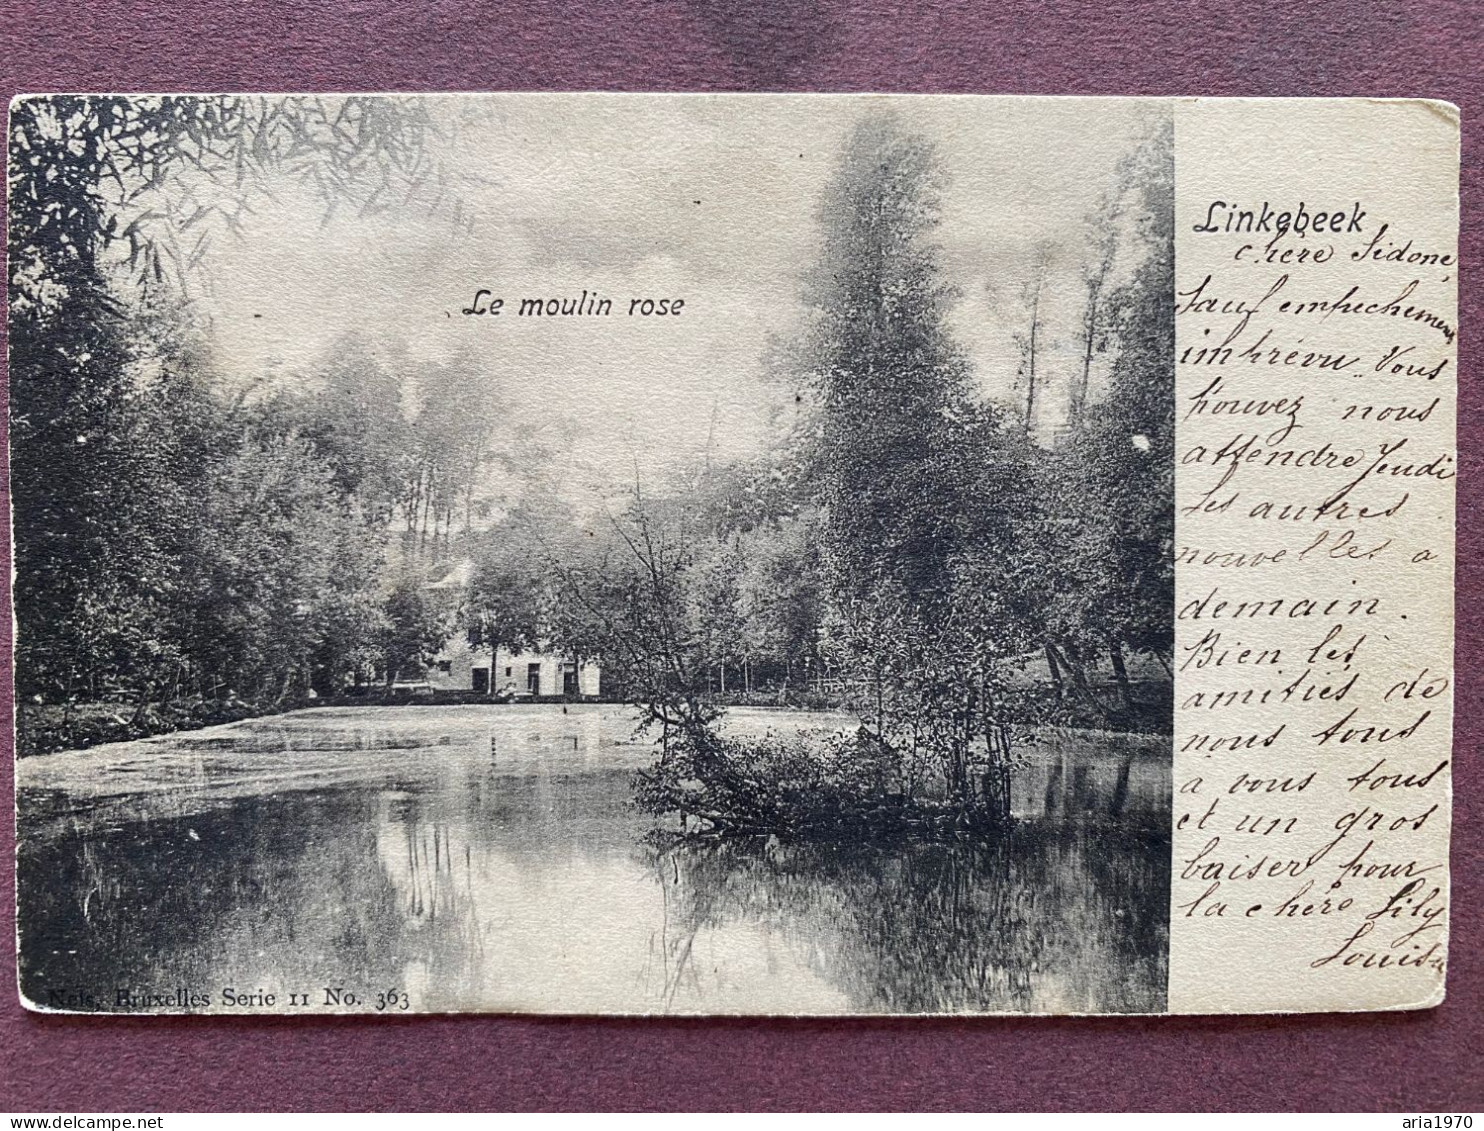 Le moulin rose
Linkebeek
chère Sidone,
Sauf empechement
imprévu. Vous
pouvez nous
attendre Jeudi
les autres
nouvelles a
demain.
Bien les
amitiés de
nous tous
a vous tous
et un gros
baiser pour
la chère Lily
Louisa
Nels, Bruxelles Serie 11 No. 363
aria1970